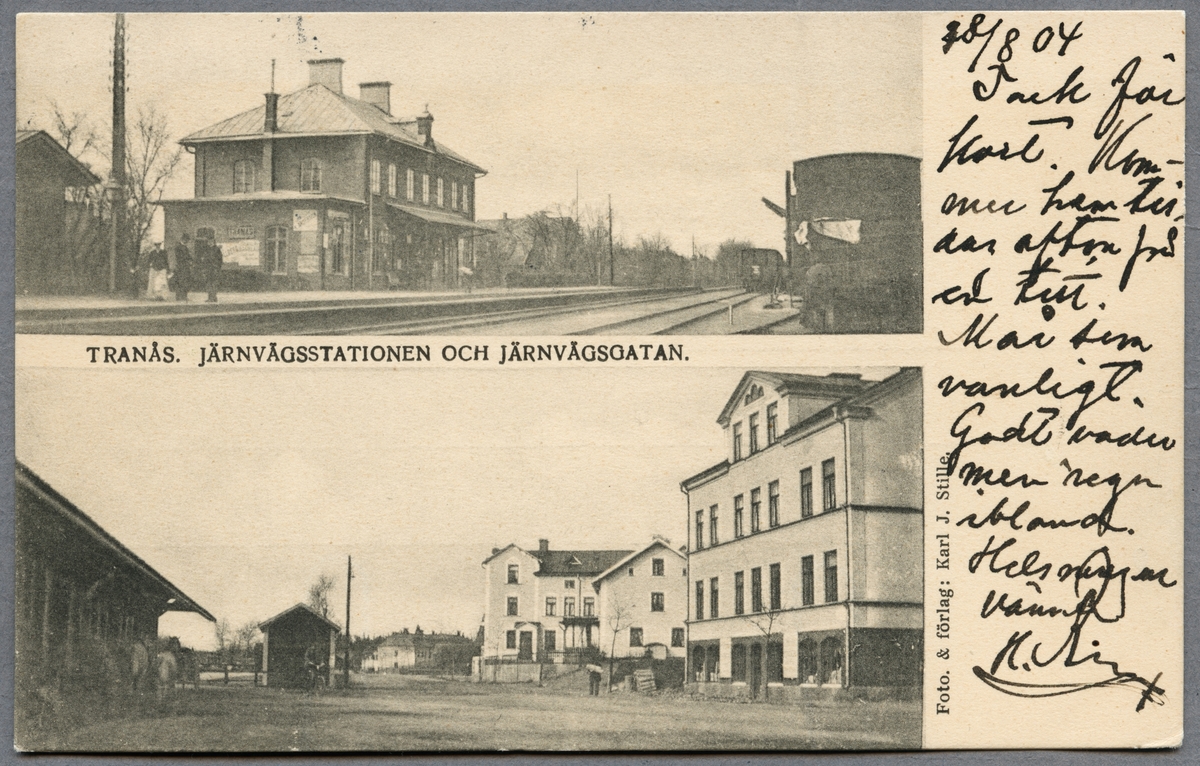 TRANÅS. JÄRNVÄGSSTATIONEN OCH JÄRNVÄGSGATAN.
TRANÅS
Foto. & förlag: Karl J. Stille.
18/8 04
Tack för
kort. Kom-
mer hem tis-
das afton från
ed
Mår som
vanligt.
Godt väder
men regn
ibland.
Helsningar
vännen
K.